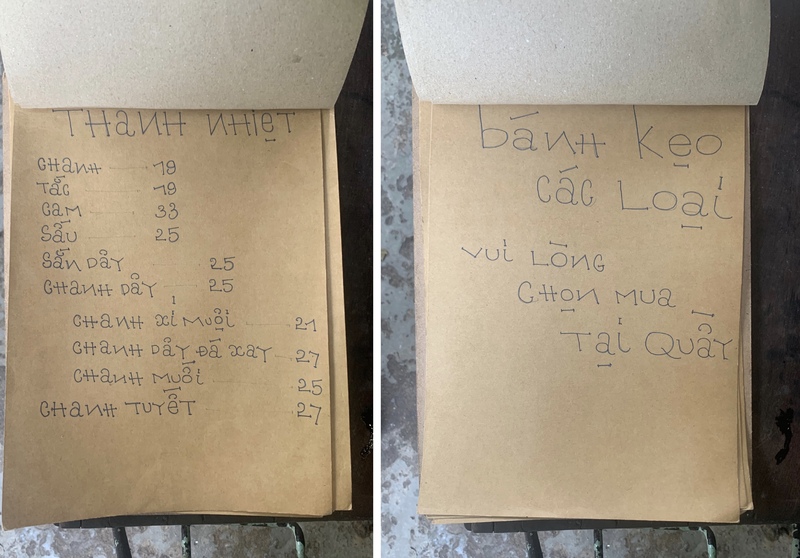 Thanh nhiệt
Chanh 19
Tắc 19
Cam 33
Sấu 25
Sắn dây 25
Chanh dây 25
Chanh xí muội 21
Chanh dây đá xay 27
Chanh muối 25
Chanh tuyết 27
bánh kẹo
các loại
vui lòng
chọn mua
tại quầy